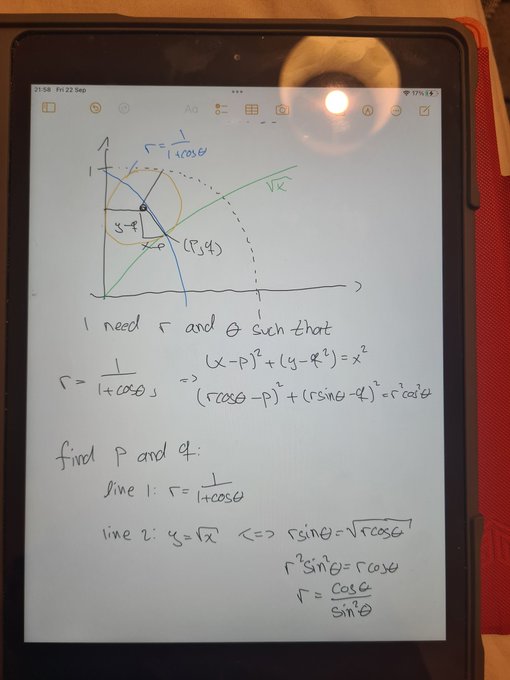 21:58 Fri 22 Sep
17%
Aa
r = 1/(1+cosθ)
1
√x
y-q
x-p
(p,q)
I need r and θ such that
r = 1/(1+cosθ), => (x-p)²+(y-q²)=x²
(rcosθ-p)²+(rsinθ-q)²=r²cos²θ
find p and q:
line 1: r = 1/(1+cosθ)
line 2: y=√x <=> rsinθ=√rcosθ
r²sin²θ=rcosθ
r = cosθ/sin²θ